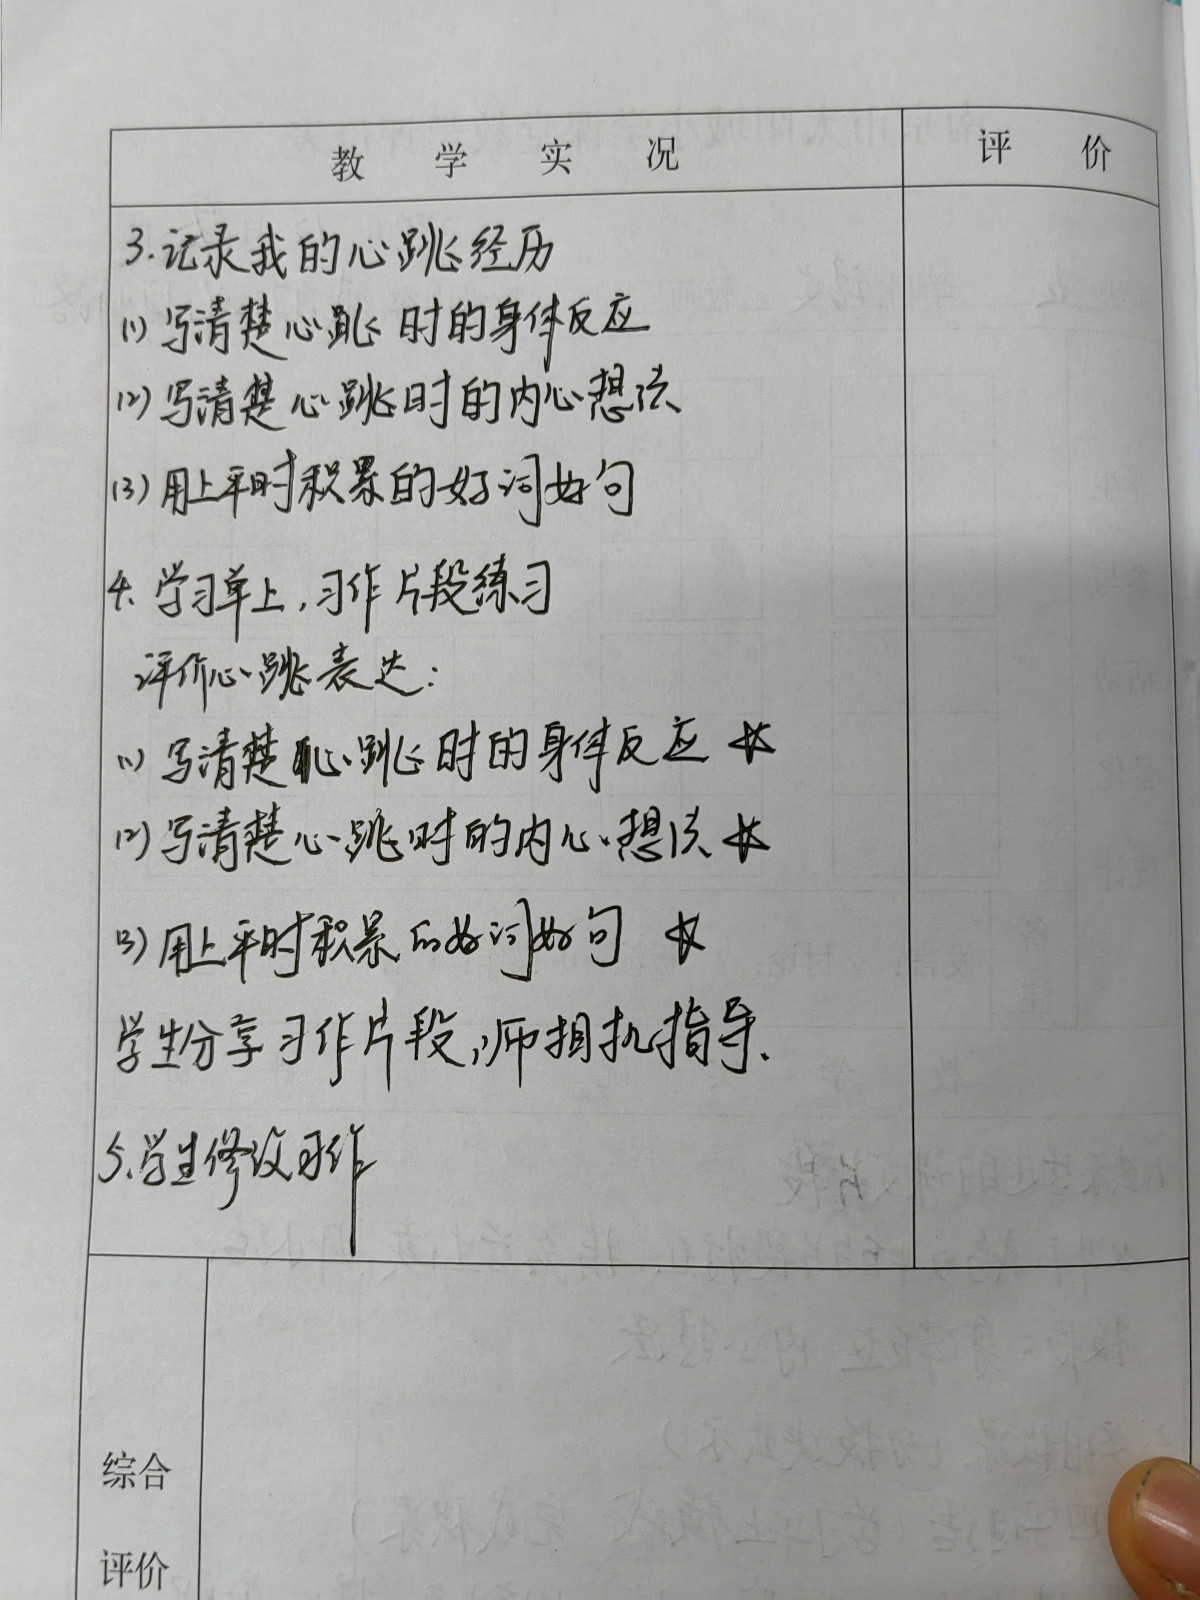 教 学 实 况
评 价
3.记录我的心跳经历
(1)写清楚心跳时的身体反应
(2)写清楚心跳时的内心想法
(3)用上平时积累的好词好句
4.学习单上,习作片段练习
评价心跳表达:
(1)写清楚心跳时的身体反应☆
(2)写清楚心跳时的内心想法☆
(3)用上平时积累的好词好句 ☆
学生分享习作片段,师相机指导、
5.学生修改习作
综合
评价